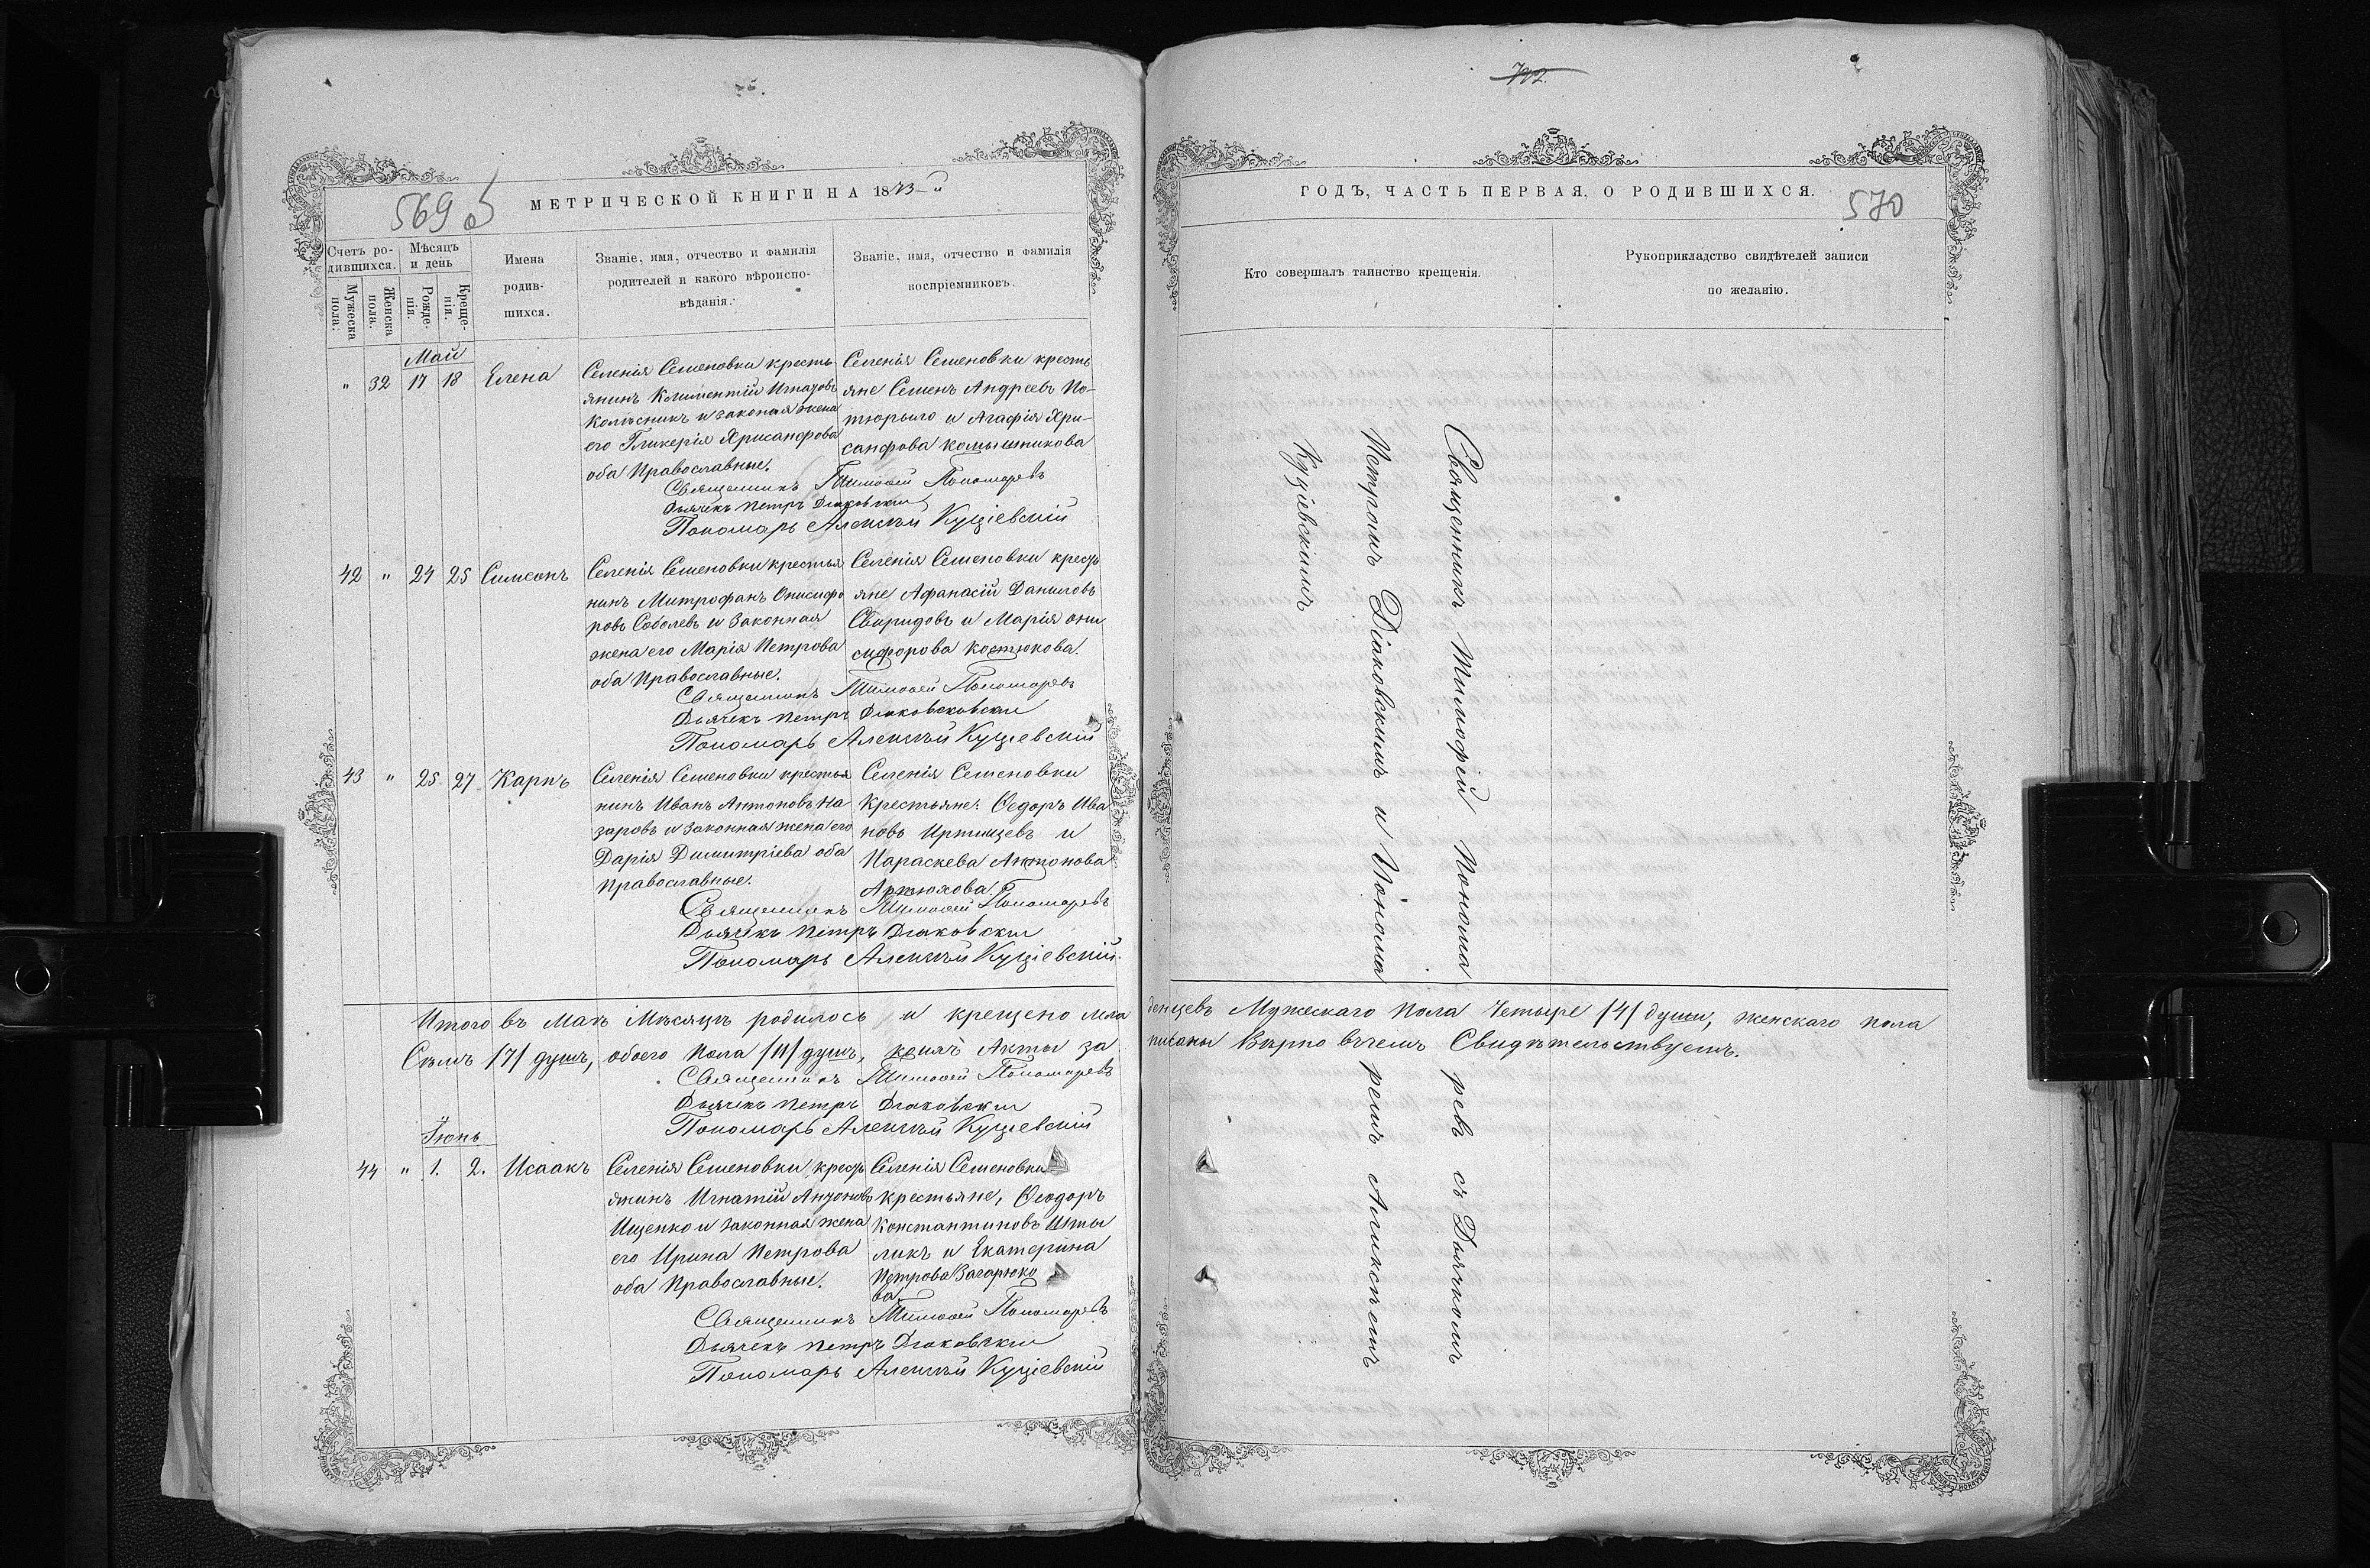 569 об
МЕТРИЧЕСКОЙ КНИГИ НА 1873-й
Счетъ ро-
дившихся.
Мужеска
пола.
Женска
пола.
Мѣсяцъ
и день
Рожде-
нія.
Креще-
нія.
Имена
родив-
шихся.
Званіе, имя, отчество и фамилія
родителей и какого вѣроиспо-
вѣданія.
Званіе, имя, отчество и фамилія
воспріемниковъ.
Май
" 32 17 18 Елена
Селенія Семеновки кресть
янинъ Климентій Игнатовъ
Колѣсникъ и законая жена
его Гликерія Хрисанфова
оба Православные.
Селенія Семеновки кресть
яне Семенъ Андреевъ По-
тюрыло и Агафія Хри-
санфова Комышникова
Священникъ Тимофей Пономаревъ
Дьячекъ Петръ Діаковскій
Пономарь Алексѣй Куціевскій
42 " 24 25 Симеонъ
Селенія Семеновки крестья
нинъ Митрофанъ Онисифо
ровъ Соболевъ и законная
жена его Марія Петрова
оба Православные.
Селенія Семеновки крестъ
яне Афанасій Даниловъ
Свиридовъ и Марія они
сифорова Костюкова.
Священникъ Тимофей Пономаревъ
Дьячекъ Петръ
Пономарь Алексѣй Куціевскій
43 " 25 27 Карпъ
Селенія Семеновки крестья
нинъ Иванъ Антоновъ На
заровъ и законная жена его
Дарія Димитріева оба
Православные.
Селенія Семеновки
Крестьяне: Ѳедоръ Ива
новъ Иртищевъ и
Параскева Антонова
Артюхова.
Священникъ Тимофей Пономаревъ
Дьячекъ Петръ Діаковскій
Пономарь Алексѣй Куціевскій.
Итого въ Маѣ Мѣсяцѣ родилось и крещено мла
Сѣмъ /7/ душъ, обоего пола /11/ душъ, коихъ Акты за
Священникъ Тимофей Пономаревъ
Дьячекъ Петръ Діаковскій
Пономарь Алексѣй Куціевскій
Іюнь
44 " 1. 2. Исаакъ
Селенія Семеновки крестъ
янинъ Игнатій Антоновъ
Ищенко и законная жена
его Ирина Петрова
оба Православные.
Селенія Семеновки
крестьяне, Ѳеодоръ
Константиновъ Шты
ликъ и Екатерина
Петрова Загарюко
ва
Священникъ Тимофей Пономаревъ
Дьячекъ Петръ Діаковскій
Пономарь Алексѣй Куціевскій
722.
ГОДЪ, ЧАСТЬ ПЕРВАЯ, О РОДИВШИХСЯ.
570
Кто совершалъ таинство крещенія.
Рукоприкладство свидѣтелей записи
по желанію.
Священникъ Тимофей Понома
Петромъ Діаковскимъ и Понома
Куціевскимъ
денцевъ Мужескаго Пола Четыре /4/ души, женскаго пола
писаны Вѣрно въ чемъ Свидѣтельствуемъ.
ревъ съ Дьячкомъ
ремъ Алексѣемъ